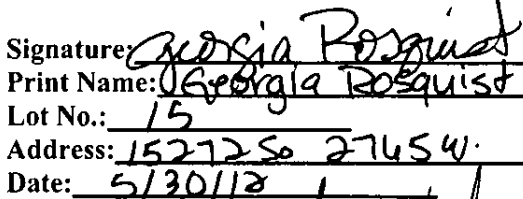 Signature: Georgia Rosquist
Print Name: Georgia Rosquist
Lot No.: 15
Address: 15272 So 2765 W.
Date: 5/30/12